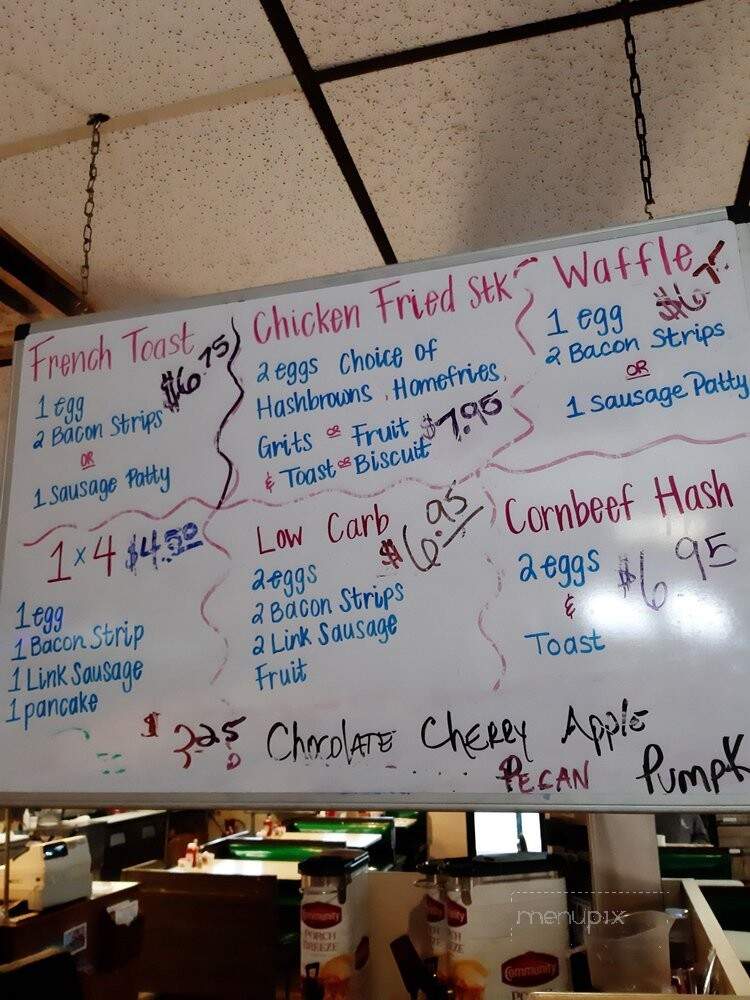 French Toast
$6.75
1 egg
2 Bacon Strips
OR
1 Sausage Patty
Chicken Fried Stk
2 eggs Choice of
Hashbrowns, Homefries,
Grits OR Fruit $7.95
& Toast OR Biscuit
Waffle
1 egg
2 Bacon Strips
OR
1 Sausage Patty
1 x 4 $4.50
1 egg
1 Bacon Strip
1 Link Sausage
1 pancake
Low Carb
$6.95
2 eggs
2 Bacon Strips
2 Link Sausage
Fruit
Cornbeef Hash
2 eggs $6.95
&
Toast
Chocolate Cherry Apple
Pecan Pumpk
Community
PORCH
BREEZE
Community
menupix